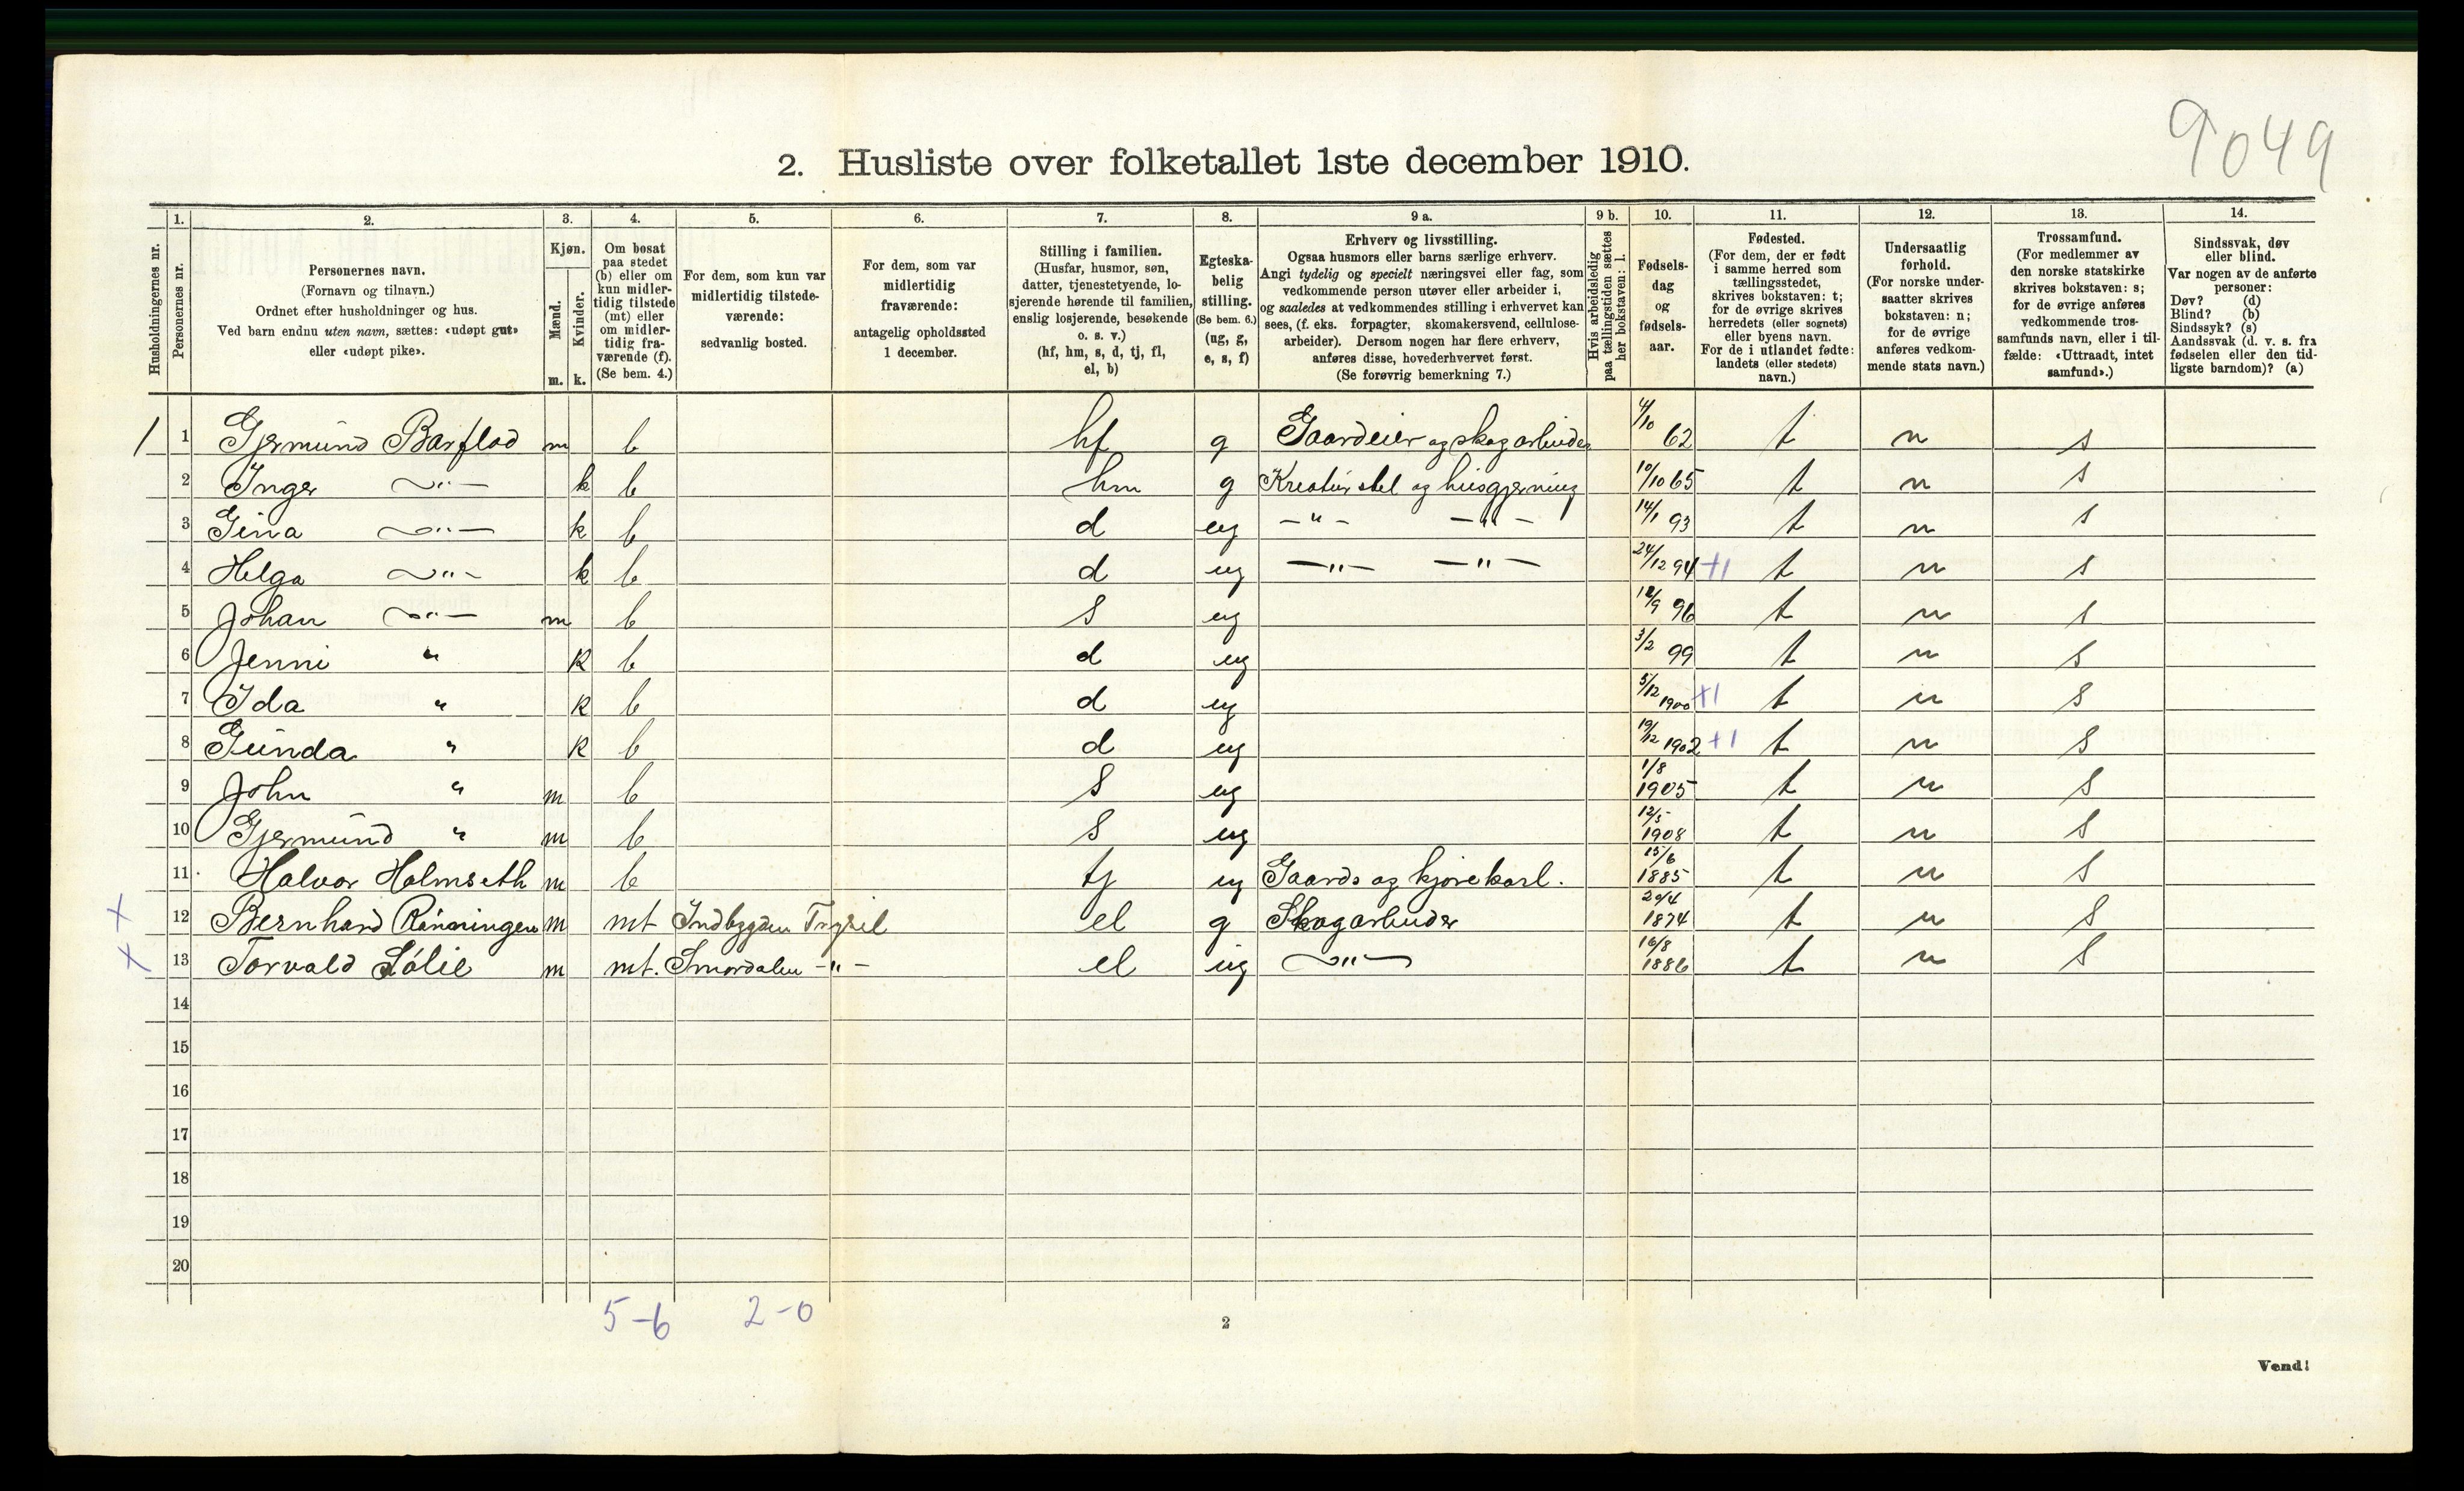 9049
2. Husliste over folketallet 1ste december 1910.
Husholdningernes nr.
1. Personernes nr.
2. Personernes navn. (Fornavn og tilnavn.) Ordnet efter husholdninger og hus. Ved barn endnu uten navn, sættes: «udøpt gut» eller «udøpt pike».
3. Kjøn. Mænd. m. Kvinder. k.
4. Om bosat paa stedet (b) eller om kun midlertidig tilstede (mt) eller om midlertidig fraværende (f). (Se bem. 4.)
5. For dem, som kun var midlertidig tilstedeværende: sedvanlig bosted.
6. For dem, som var midlertidig fraværende: antagelig opholdssted 1 december.
7. Stilling i familien. (Husfar, husmor, søn, datter, tjenestetyende, losjerende hørende til familien, enslig losjerende, besøkende o. s. v.) (hf, hm, s, d, tj, fl, el, b)
8. Egteskabelig stilling. (Se bem. 6.) (ug, g, e, s, f)
9 a. Erhverv og livsstilling. Ogsaa husmors eller barns særlige erhverv. Angi tydelig og specielt næringsvei eller fag, som vedkommende person utøver eller arbeider i, og saaledes at vedkommendes stilling i erhvervet kan sees, (f. eks. forpagter, skomakersvend, cellulosearbeider). Dersom nogen har flere erhverv, anføres disse, hovederhvervet først. (Se forøvrig bemerkning 7.)
9 b. Hvis arbeidsledig paa tællingstiden sættes her bokstaven: l.
10. Fødselsdag og fødselsaar.
11. Fødested. (For dem, der er født i samme herred som tællingsstedet, skrives bokstaven: t; for de øvrige skrives herredets (eller sognets) eller byens navn. For de i utlandet fødte: landets (eller stedets) navn.)
12. Undersaatlig forhold. (For norske undersaatter skrives bokstaven: n; for de øvrige anføres vedkommende stats navn.)
13. Trossamfund. (For medlemmer av den norske statskirke skrives bokstaven: s; for de øvrige anføres vedkommende trossamfunds navn, eller i tilfælde: «Uttraadt, intet samfund».)
14. Sindssvak, døv eller blind. Var nogen av de anførte personer: Døv? (d) Blind? (b) Sindssyk? (s) Aandssvak (d. v. s. fra fødselen eller den tidligste barndom)? (a)
1 1 Gjermund Barflod m b hf g Gaardeier og skogarbeider 4/10 62 t n s
2 Inger —"— k b hm g Kreaturstel og husgjerning 10/10 65 t n s
3 Gina —"— k b d ug —"— —"— 14/1 93 t n s
4 Helga —"— k b d ug —"— —"— 24/12 94 +1 t n s
5 Johan —"— m b s ug 18/9 96 t n s
6 Jenni " k b d ug 3/2 99 t n s
7 Ida " k b d ug 5/12 1900 +1 t n s
8 Gunda " k b d ug 19/12 1902 +1 t n s
9 John " m b s ug 1/8 1905 t n s
10 Gjermund " m b s ug 12/5 1908 t n s
11 Halvor Holmseth m b tj ug Gaards og kjørekarl. 15/6 1885 t n s
x 12 Bernhard Rønningen m mt Indbygden Trysil el g Skogarbeider 20/4 1874 t n s
x 13 Torvald Sølie m mt. —"— el ug —"— 16/8 1886 t n s
14
15
16
17
18
19
20
5-6 2-0
2
Vend!